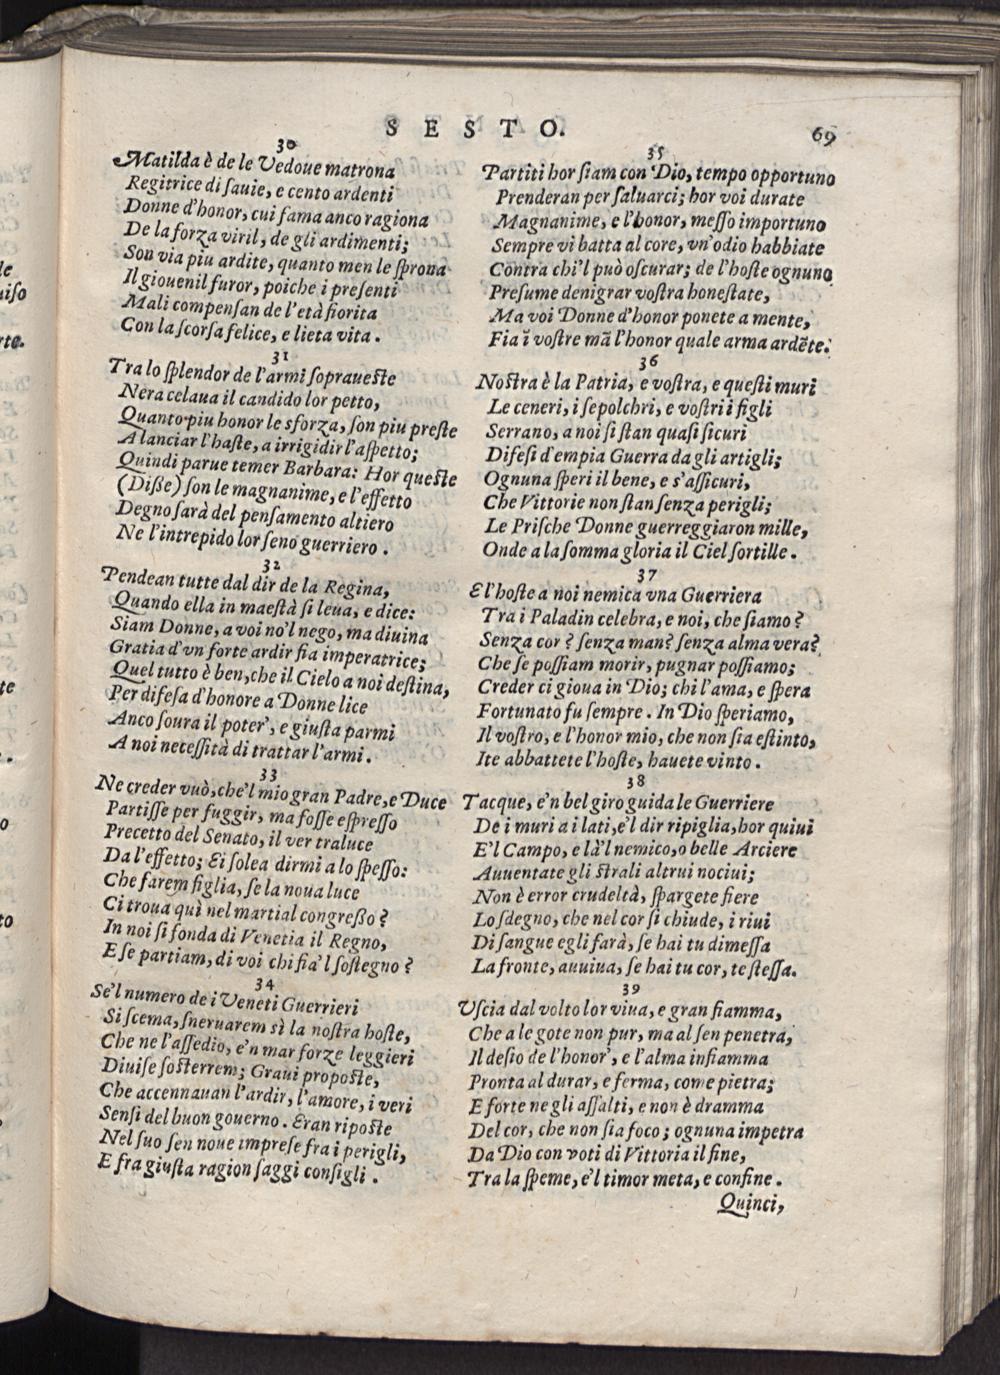 SESTO.
69
30
Matilda è de le Vedoue matrona
Regitrice di sauie, e cento ardenti
Donne d'honor, cui fama anco ragiona
De la forza viril, de gli ardimenti;
Son via piu ardite, quanto men le sprona
Il giouenil furor, poiche i presenti
Mali compensan de l'età fiorita
Con la scorsa felice, e lieta vita.
31
Tra lo splendor de l'armi soprauesте
Nera celaua il candido lor petto,
Quanto piu honor le sforza, son piu preste
A lanciar l'haste, a irrigidir l'aspetto;
Quindi parue temer Barbara: Hor queste
(Disse) son le magnanime, e l'effetto
Degno sarà del pensamento altiero
Ne l'intrepido lor seno guerriero.
32
Pendean tutte dal dir de la Regina,
Quando ella in maestà si leua, e dice:
Siam Donne, a voi no'l nego, ma diuina
Gratia d'vn forte ardir fia imperatrice;
Quel tutto è ben, che il Cielo a noi destina,
Per difesa d'honore a Donne lice
Anco soura il poter', e giusta parmi
A noi necessità di trattar l'armi.
33
Ne creder vuò, che'l mio gran Padre, e Duce
Partisse per fuggir, ma fosse espresso
Precetto del Senato, il ver traluce
Da l'effetto; Ei solea dirmi a lo spesso:
Che farem figlia, se la noua luce
Ci troua quì nel martial congresso?
In noi si fonda di Venetia il Regno,
E se partiam, di voi chi fia'l sostegno?
34
Se'l numero de i Veneti Guerrieri
Si scema, sneruarem sì la nostra hoste,
Che ne l'assedio, e'n mar forze leggieri
Diuise sosterrem; Graui proposte,
Che accennauan l'ardir, l'amore, i veri
Sensi del buon gouerno. Eran riposte
Nel suo sen noue imprese fra i perigli,
E fra giusta ragion saggi consigli.
35
Partiti hor siam con Dio, tempo opportuno
Prenderan per saluarci; hor voi durate
Magnanime, e l'honor, messo importuno
Sempre vi batta al core, vn'odio habbiate
Contra chi'l può oscurar; de l'hoste ognuno
Presume denigrar vostra honestate,
Ma voi Donne d'honor ponete a mente,
Fia ĩ vostre mã l'honor quale arma ardẽte.
36
Nostra è la Patria, e vostra, e questi muri
Le ceneri, i sepolchri, e vostri i figli
Serrano, a noi si stan quasi sicuri
Difesi d'empia Guerra da gli artigli;
Ognuna speri il bene, e s'assicuri,
Che Vittorie non stan senza perigli;
Le Prische Donne guerreggiaron mille,
Onde a la somma gloria il Ciel sortille.
37
E l'hoste a noi nemica vna Guerriera
Tra i Paladin celebra, e noi, che siamo?
Senza cor? senza man? senza alma vera?
Che se possiam morir, pugnar possiamo;
Creder ci gioua in Dio; chi l'ama, e spera
Fortunato fu sempre. In Dio speriamo,
Il vostro, e l'honor mio, che non sia estinto,
Ite abbattete l'hoste, hauete vinto.
38
Tacque, e'n bel giro guida le Guerriere
De i muri a i lati, e'l dir ripiglia, hor quiui
E'l Campo, e là'l nemico, o belle Arciere
Auuentate gli strali altrui nociui;
Non è error crudeltà, spargete fiere
Lo sdegno, che nel cor si chiude, i riui
Di sangue egli farà, se hai tu dimessa
La fronte, auuiua, se hai tu cor, te stessa.
39
Vscia dal volto lor viua, e gran fiamma,
Che a le gote non pur, ma al sen penetra,
Il desio de l'honor', e l'alma infiamma
Pronta al durar, e ferma, come pietra;
E forte ne gli assalti, e non è dramma
Del cor, che non sia foco; ognuna impetra
Da Dio con voti di Vittoria il fine,
Tra la speme, e'l timor meta, e confine.
Quinci,